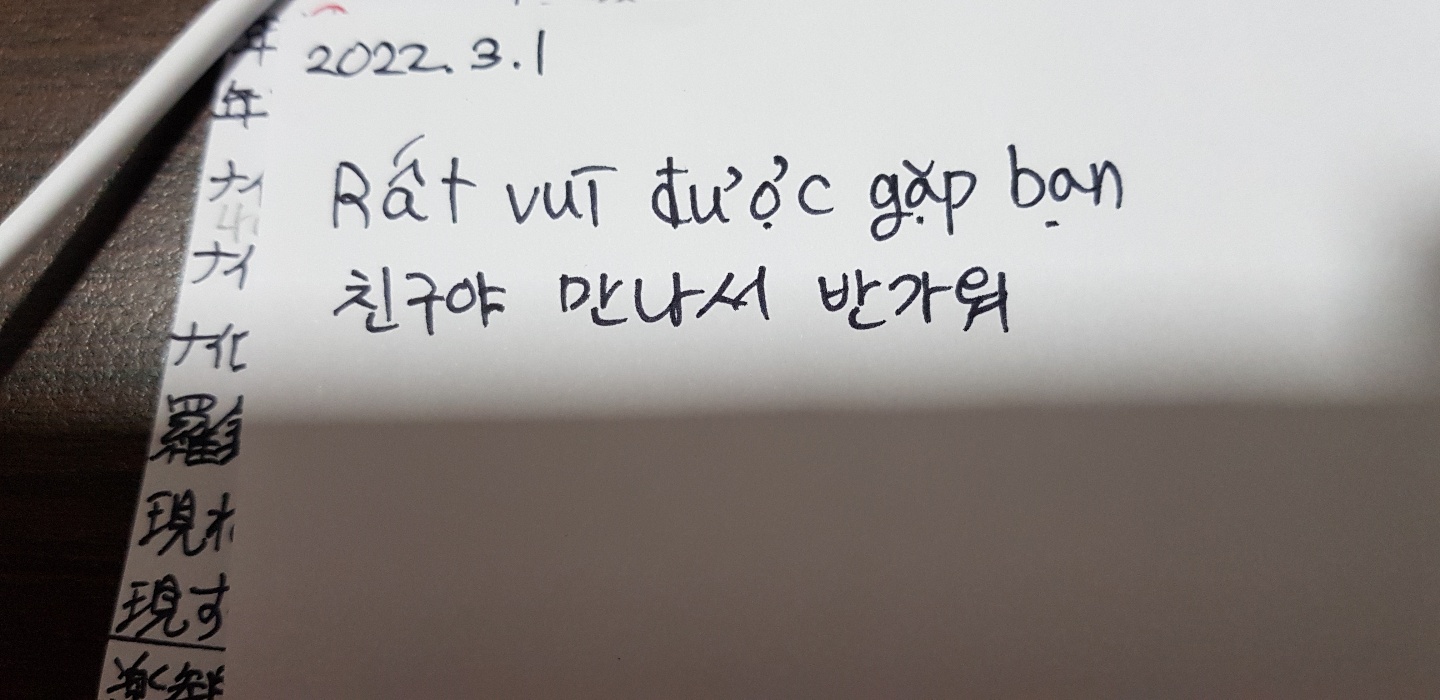 2022.3.1
Rất vui được gặp bạn
친구야 만나서 반가워
年
年
ナイ
ナイ
ナイヒ
羅
現れ
現す